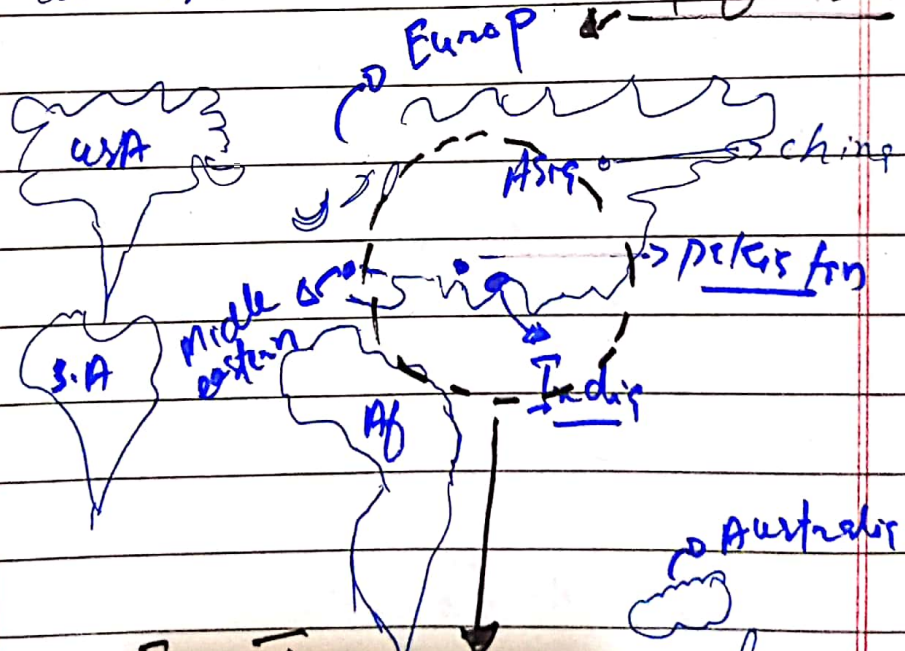 Europ
USA
Asia
China
Pakistan
Midle
eastern
S.A
India
Af
Australia